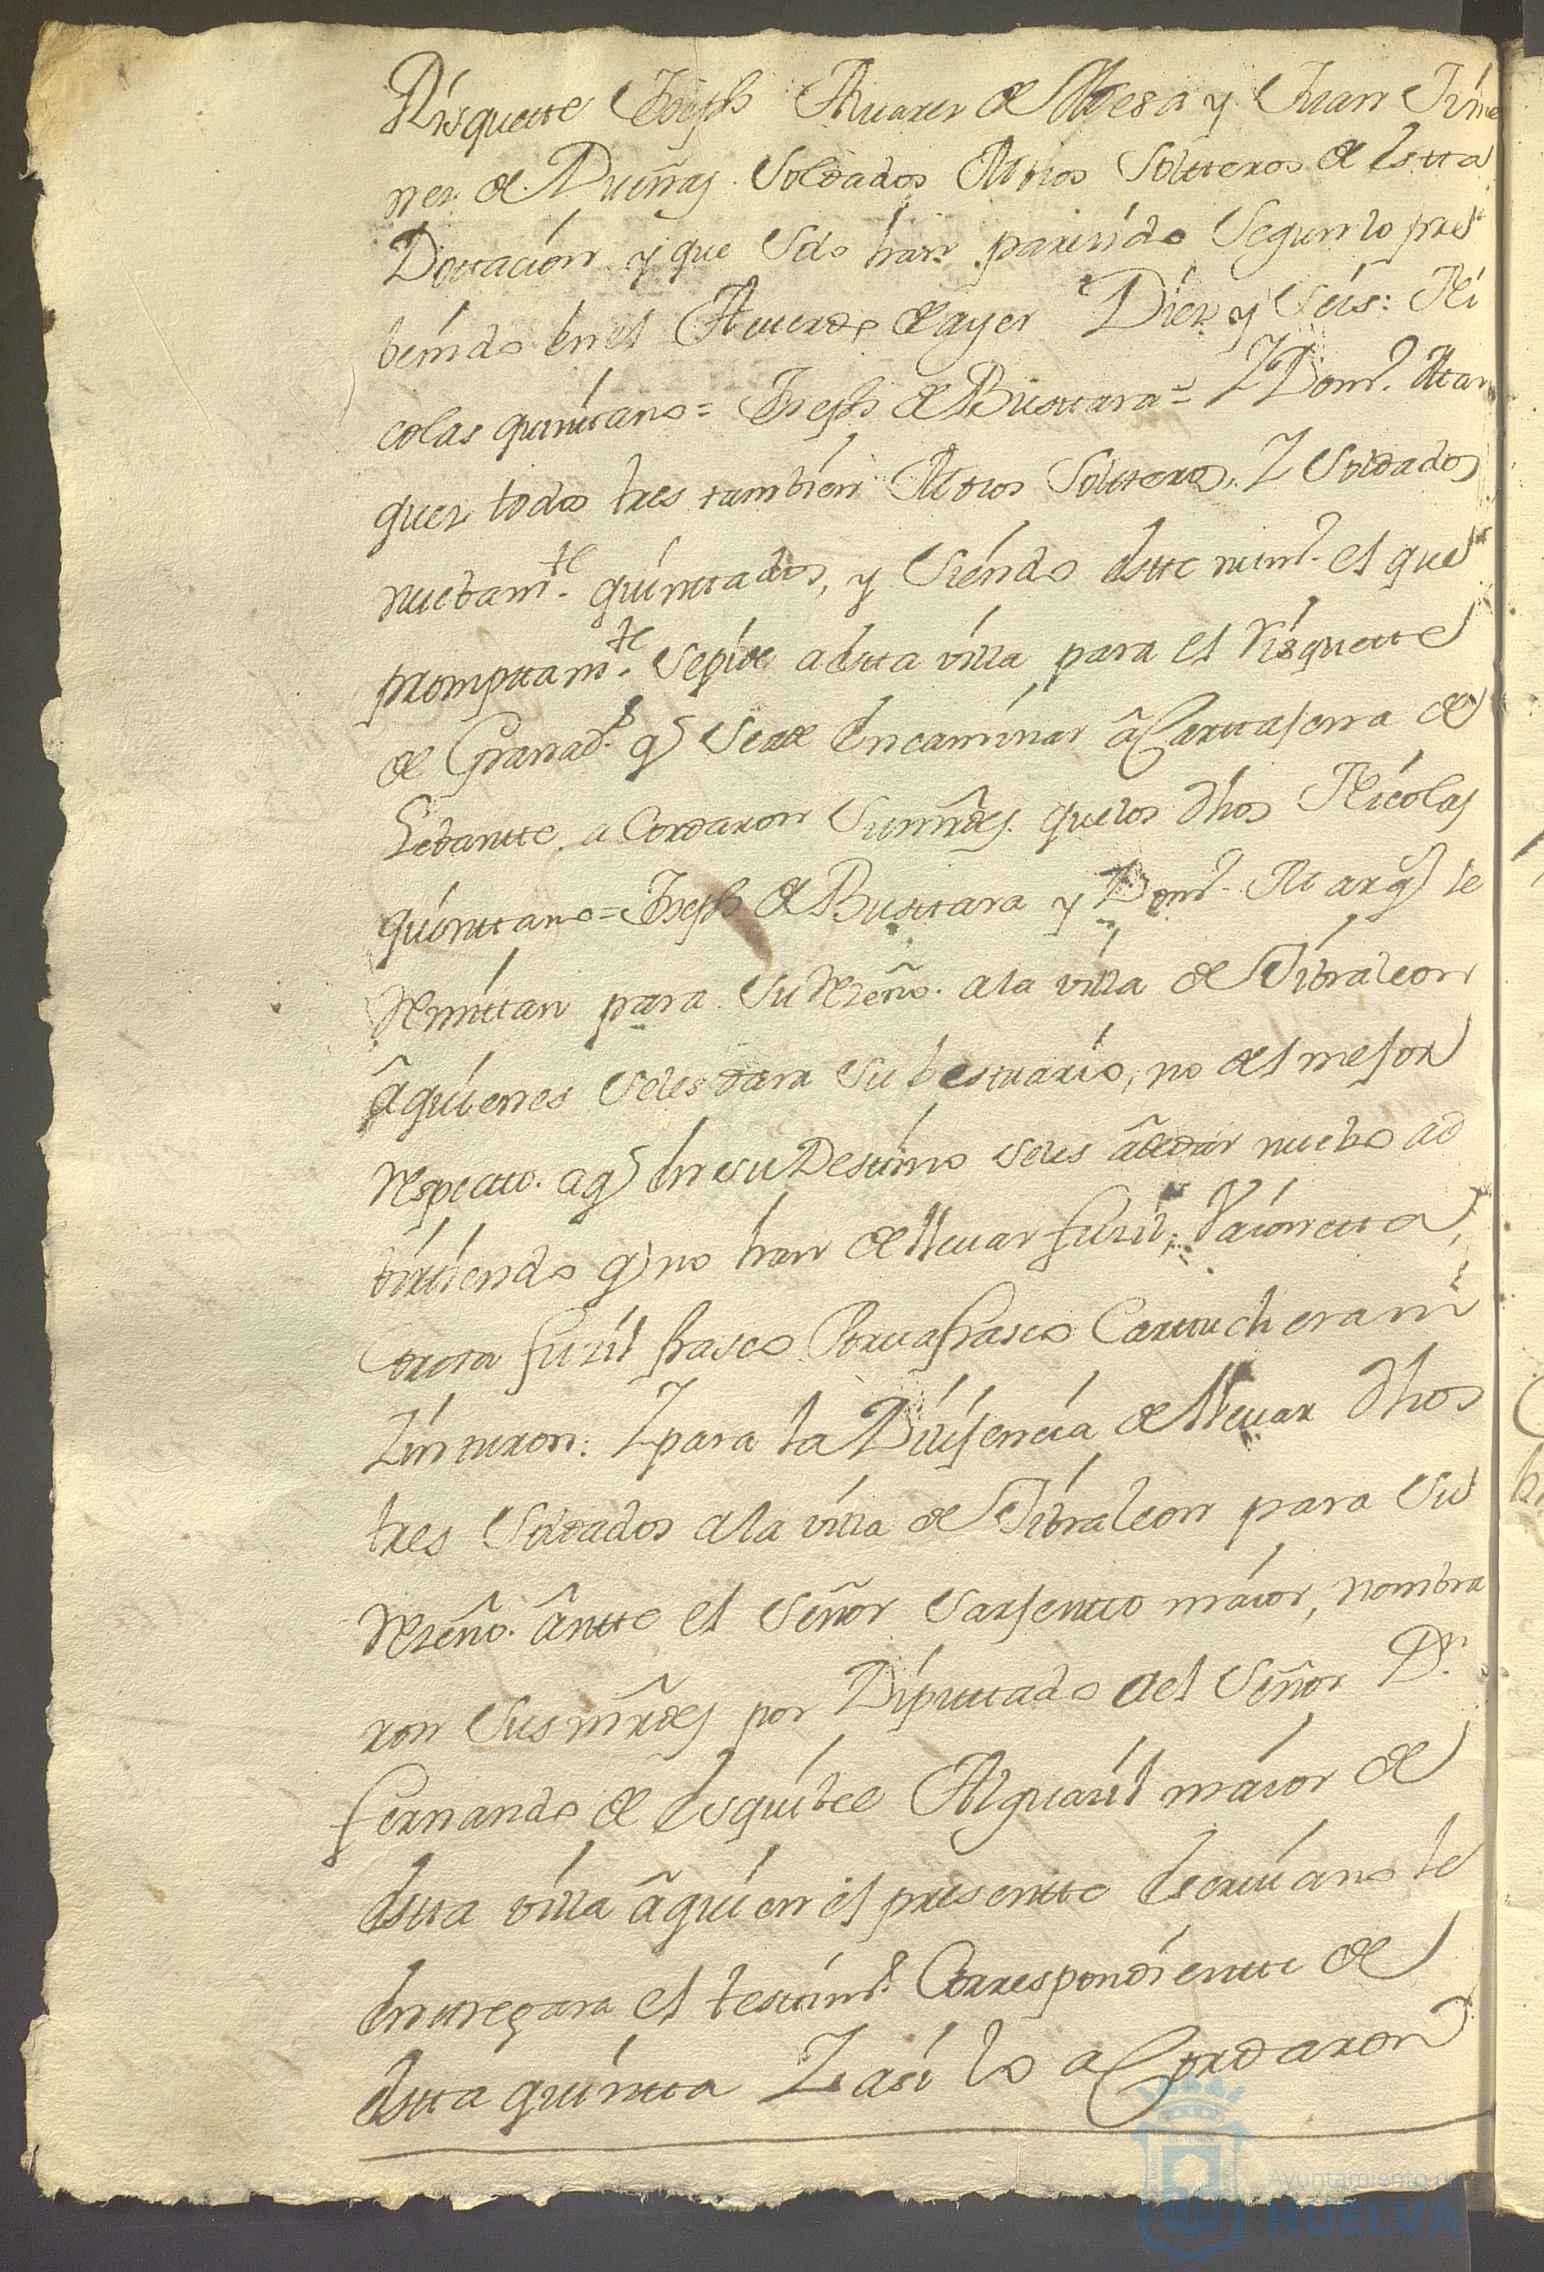 Risquette Joseph Aluarez de Mesa y Juan Jime
nez de Dueñas Soldados Mozos Soltteros de Estta
Dottacion y que Solo han parezido Segun lo pre
benido en el Acuerdo de ayer Diez y Seis: Ni
colas quinttano = Joseph de Busttara = Y Domo. Mar
quez todos tres tambien Mozos Soltteros, Y Soldados
nuebamte. quinttados, y Siendo Estte numo. el que
prompttamte. Sepide a Estta villa para el Risquette
de Granados q Seade Encaminar a Carttajena de
Lebantte. a Cordaron Sus mrdes. que los dhos Nicolas
quinttano = Joseph de Busttara y Domo. Marqz Se
Remittan para Su Rezeño. ala villa de Jibraleon
a quienes Seles dara Su bestuario, no del mejor
respectto. a q En su Destino Seles a de dar nuebo ad
birtiendo q no han de lleuar fuzil, Vaionetta,
Porta fuzil frasco Portafrasco Carttuchera ni
Zinturon: Y para la Dilijencia de lleuar dhos
tres Soldados ala villa de Jibraleon para Su
Rezeño. antte el Señor Sarjentto maior, nombra
ron Sus mrdes por Diputtado ael Señor Dn.
fernando de Esquibel Alguazil maior de
Estta villa a quien el presentte Escriuano le
Entregara el testimo. Correspondientte de
Estta quintta Y asi lo a Cordaron
Ayuntamiento de
HUELVA